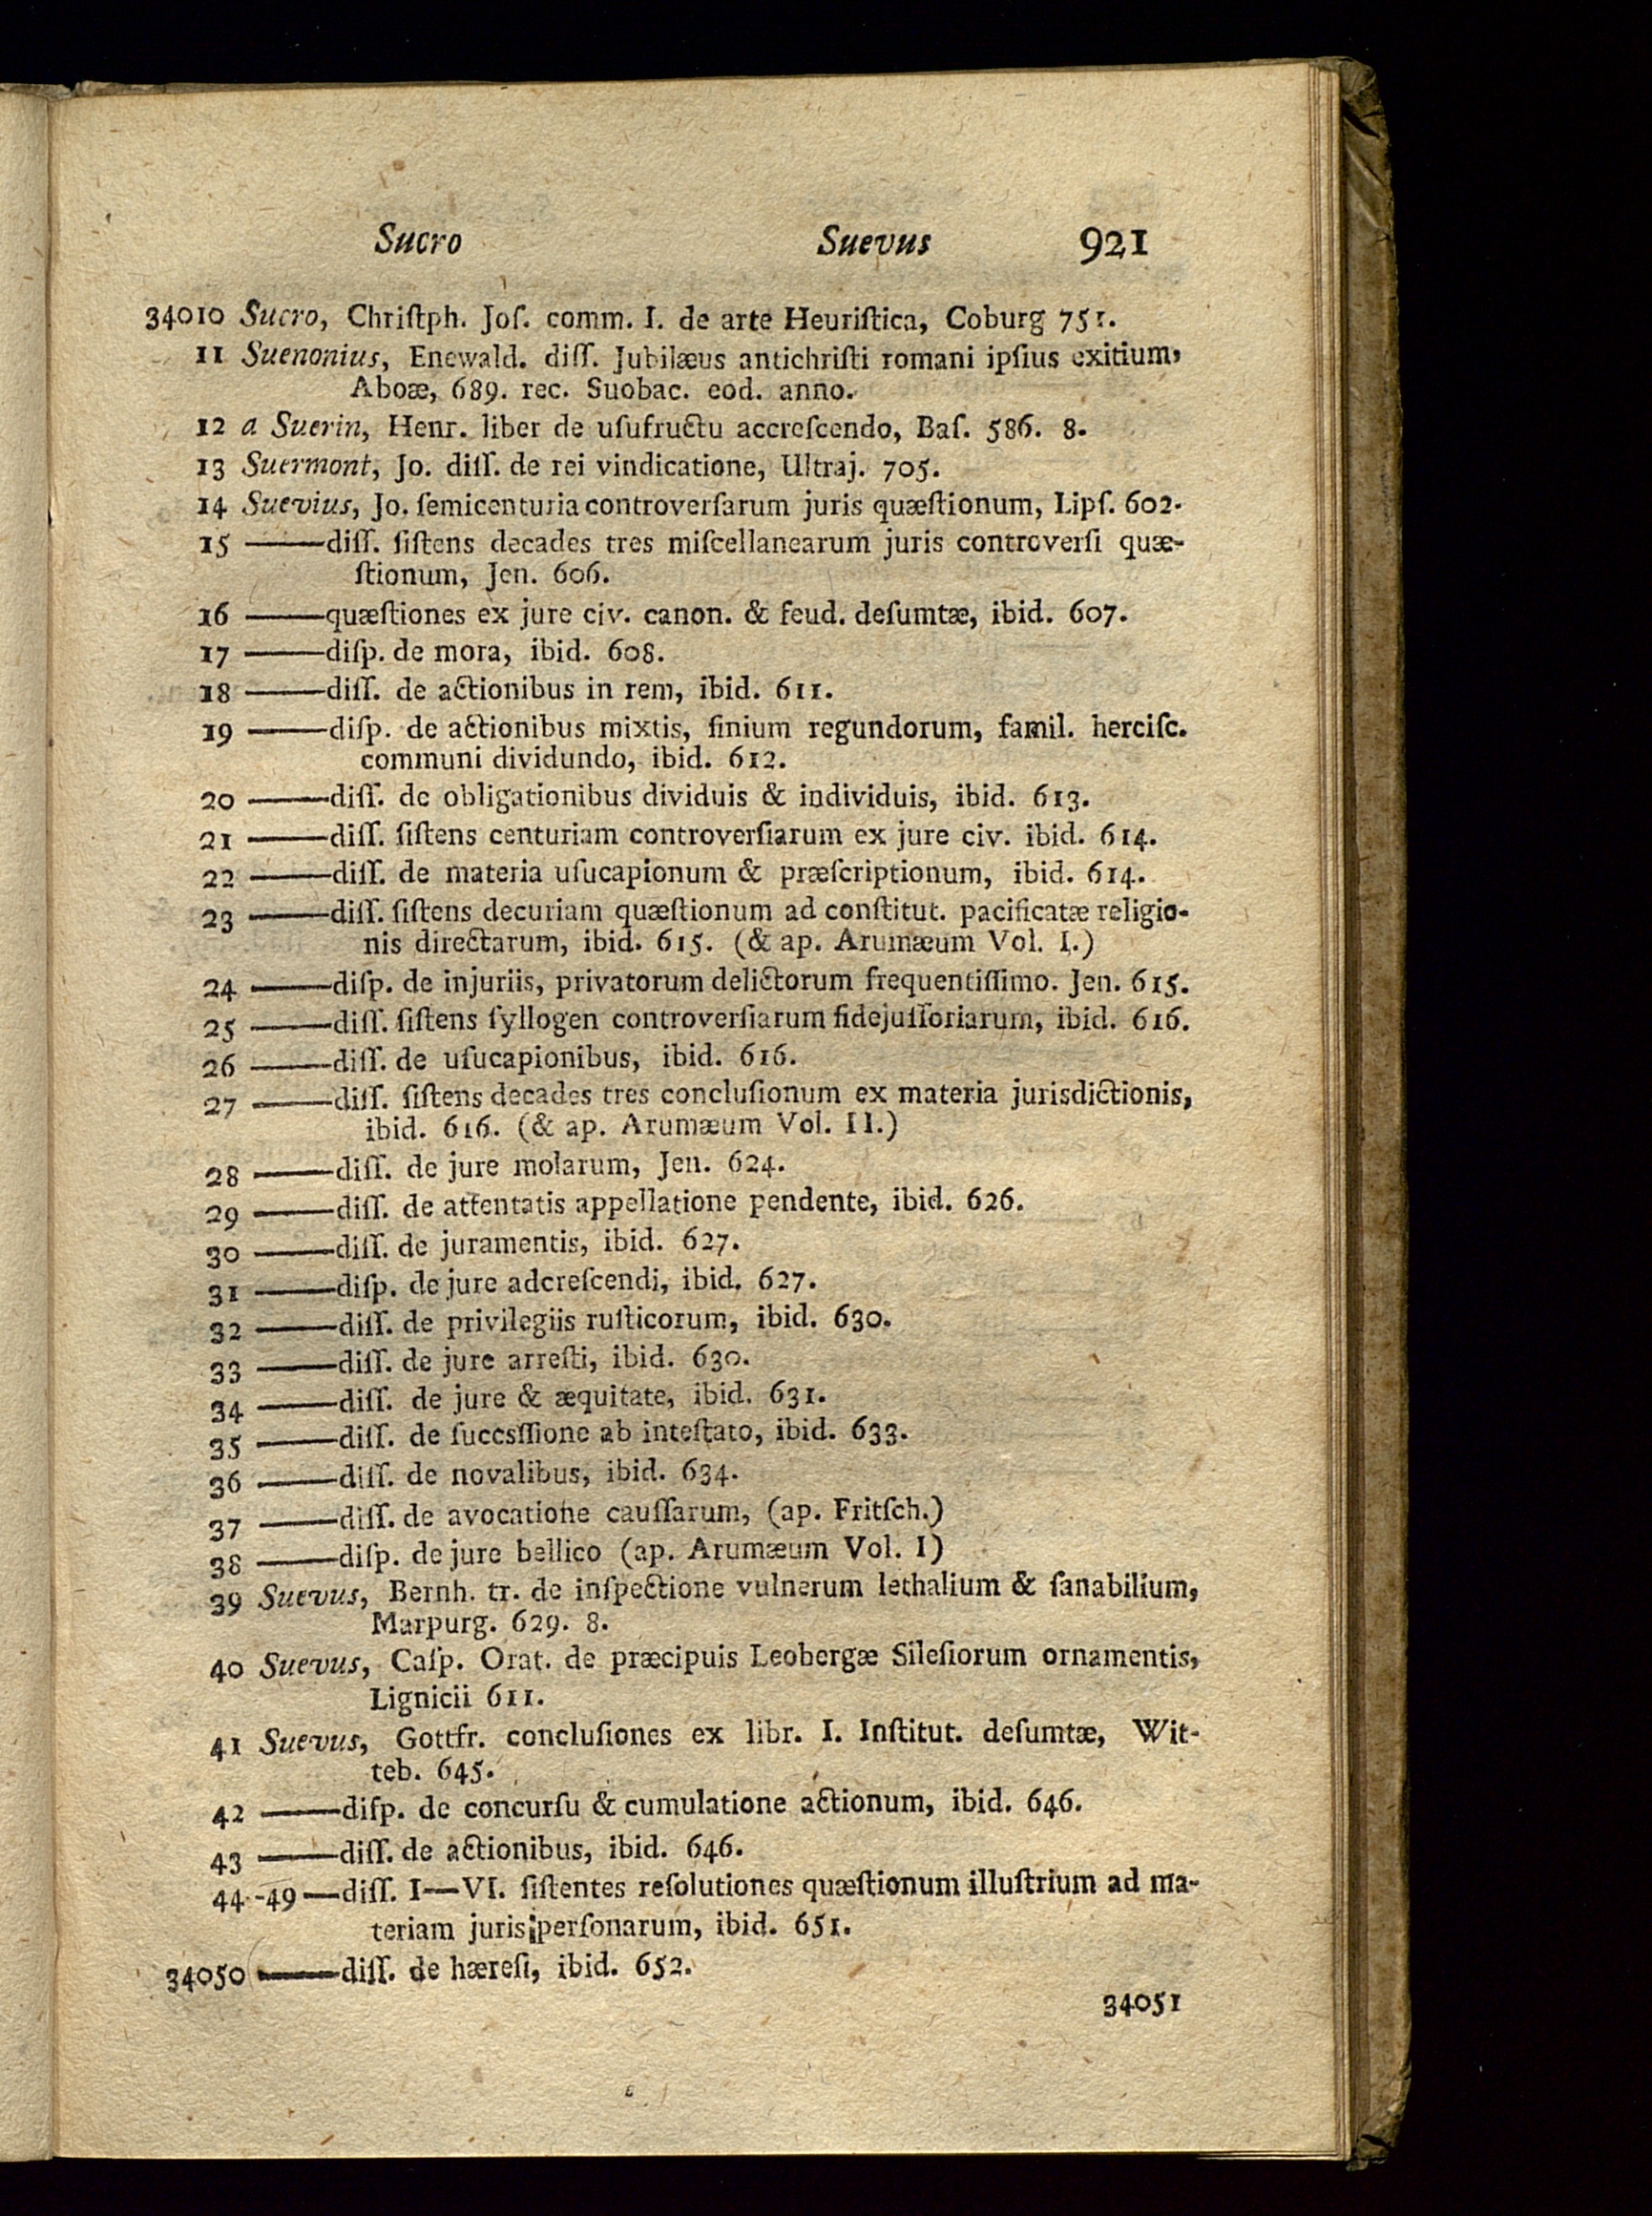 Sucro Suevus 921
34010 Sucro, Chriſtph. Joſ. comm. I. de arte Heuriſtica, Coburg 751.
11 Suenonius, Enewald. diſſ. Jubilæus antichriſti romani ipſius exitium,
Aboæ, 689. rec. Suobac. eod. anno.
12 a Suerin, Henr. liber de uſufructu accreſcendo, Baſ. 586. 8.
13 Suermont, Jo. diſſ. de rei vindicatione, Ultraj. 705.
14 Suevius, Jo. ſemicenturia controverſarum juris quæſtionum, Lipſ. 602.
15 ——diſſ. ſiſtens decades tres miſcellanearum juris controverſi quæ-
ſtionum, Jen. 606.
16 ——quæſtiones ex jure civ. canon. & feud. deſumtæ, ibid. 607.
17 ——diſp. de mora, ibid. 608.
18 ——diſſ. de actionibus in rem, ibid. 611.
19 ——diſp. de actionibus mixtis, finium regundorum, famil. herciſc.
communi dividundo, ibid. 612.
20 ——diſſ. de obligationibus dividuis & individuis, ibid. 613.
21 ——diſſ. ſiſtens centuriam controverſiarum ex jure civ. ibid. 614.
22 ——diſſ. de materia uſucapionum & præſcriptionum, ibid. 614.
23 ——diſſ. ſiſtens decuriam quæſtionum ad conſtitut. pacificatæ religio-
nis directarum, ibid. 615. (& ap. Arumæum Vol. I.)
24 ——diſp. de injuriis, privatorum delictorum frequentiſſimo. Jen. 615.
25 ——diſſ. ſiſtens ſyllogen controverſiarum fidejuſſoriarum, ibid. 616.
26 ——diſſ. de uſucapionibus, ibid. 616.
27 ——diſſ. ſiſtens decades tres concluſionum ex materia jurisdictionis,
ibid. 616. (& ap. Arumæum Vol. II.)
28 ——diſſ. de jure molarum, Jen. 624.
29 ——diſſ. de attentatis appellatione pendente, ibid. 626.
30 ——diſſ. de juramentis, ibid. 627.
31 ——diſp. de jure adcreſcendi, ibid. 627.
32 ——diſſ. de privilegiis ruſticorum, ibid. 630.
33 ——diſſ. de jure arreſti, ibid. 630.
34 ——diſſ. de jure & æquitate, ibid. 631.
35 ——diſſ. de ſuccsſſione ab inteſtato, ibid. 633.
36 ——diſſ. de novalibus, ibid. 634.
37 ——diſſ. de avocatione cauſſarum, (ap. Fritſch.)
38 ——diſp. de jure bellico (ap. Arumæum Vol. I)
39 Suevus, Bernh. tr. de inſpectione vulnerum lethalium & ſanabilium,
Marpurg. 629. 8.
40 Suevus, Caſp. Orat. de præcipuis Leobergæ Sileſiorum ornamentis,
Lignicii 611.
41 Suevus, Gottfr. concluſiones ex libr. I. Inſtitut. deſumtæ, Wit-
teb. 645.
42 ——diſp. de concurſu & cumulatione actionum, ibid. 646.
43 ——diſſ. de actionibus, ibid. 646.
44-49—diſſ. I—VI. ſiſtentes reſolutiones quæſtionum illuſtrium ad ma-
teriam juris perſonarum, ibid. 651.
34050 ——diſſ. de hæreſi, ibid. 652.
34051